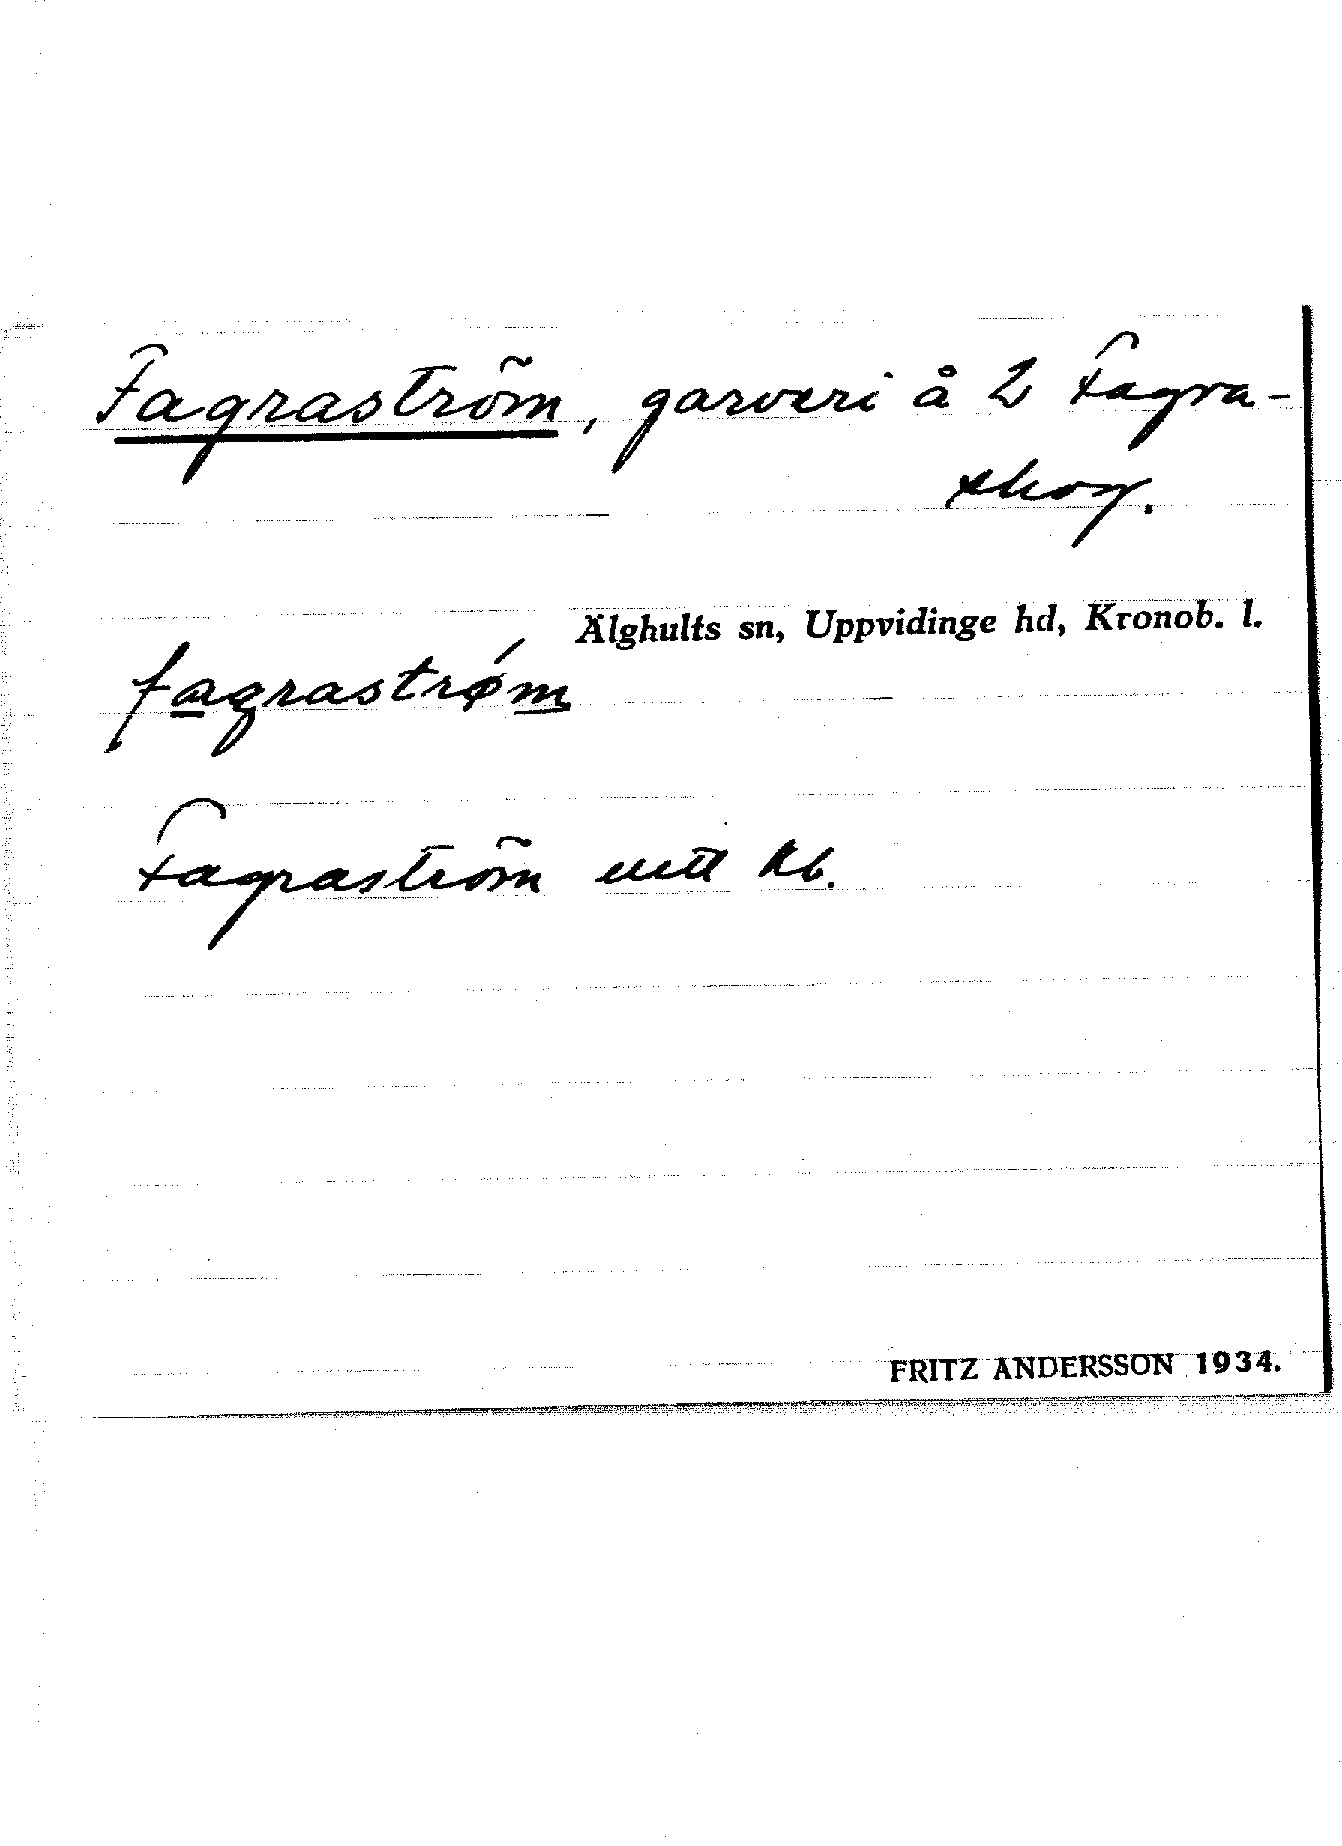 Fagraström, garveri å 2 Fagra-
skog.
Älghults sn, Uppvidinge hd, Kronob. l.
fagrastrǿm
Fagraström enl kb.
FRITZ ANDERSSON 1934.